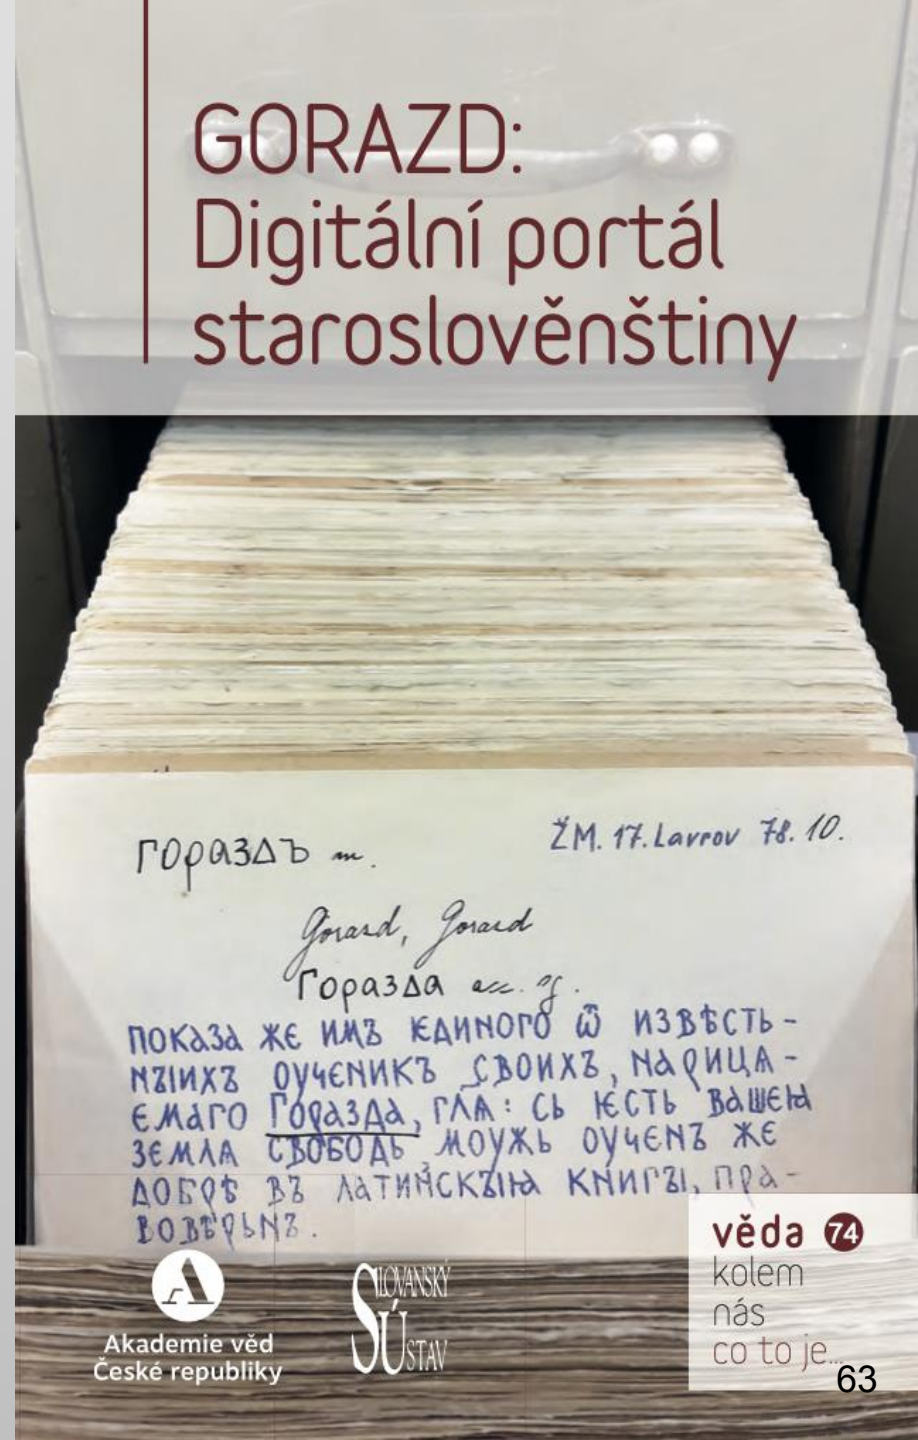 GORAZD:
Digitální portál
staroslověnštiny
горазДъ m.
ŽM. 17. Lavrov 78. 10.
Gorazd, Gorazd
Горазда acc. sg.
показа же имъ ѥдиного ѿ извѣсть-
нꙑихъ оученикъ своихъ, нарица-
ѥмаго Горазда, гл҃а: сь ѥсть вашеꙗ
землѧ свободь моужь оученъ же
добрѣ въ латиньскꙑꙗ книгꙑ, пра-
вовѣрьнъ.
Akademie věd
České republiky
SLOVANSKÝ
ÚSTAV
věda 74
kolem
nás
co to je...
63